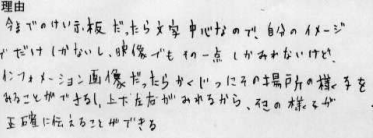 理由
今までのけい示板だったら文字中心なので、自分のイメージ
でだけしかないし、映像でもその一点しかみれないけど、
インフォメーション画像だったらかくじつにその場所の様子を
みることができるし、上下左右がみれるから、その様子が
正確に伝えることができる